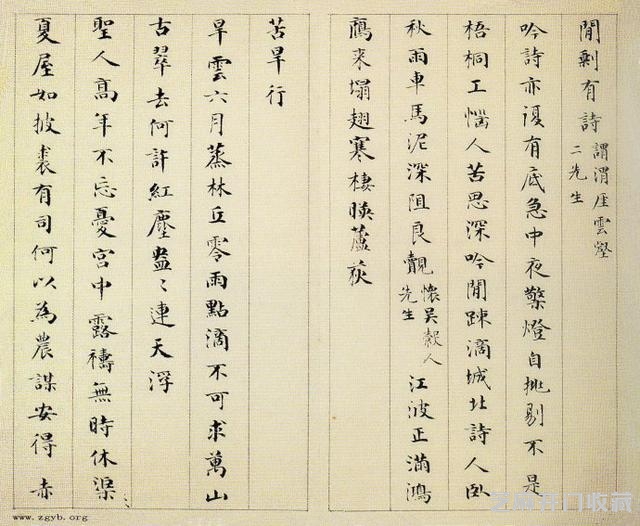 閒剩有詩謂渭厓雲壑二先生
吟詩亦復有底急中夜檠燈自挑剔不是
梧桐工惱人苦思深吟閒疎滴城北詩人臥
秋雨車馬泥深阻良覿懷吳穀人先生江波正滿鴻
鴈來塌翅寒棲暎蘆荻
苦旱行
旱雲六月蒸林丘零雨點滴不可求萬山
古翠去何許紅塵盎〻連天浮
聖人高年不忘憂宮中露禱無時休渠〻
夏屋如披裘有司何以為農謀安得赤
www.zgyb.org